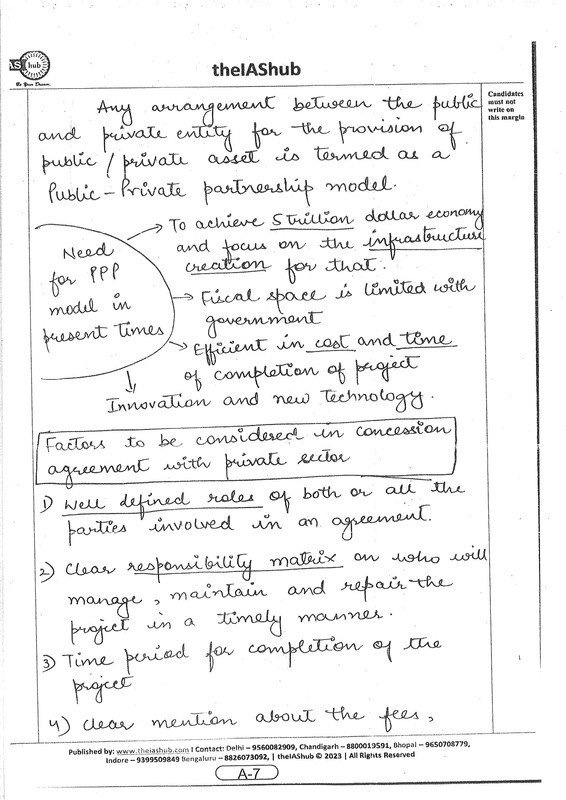 AS hub
Be Your Dream
theIAShub
Candidates
must not
write on
this margin
Any arrangement between the public
and private entity for the provision of
public / private asset is termed as a
Public - Private partnership model.
Need
for PPP
model in
present times
→ To achieve 5 trillion dollar economy
and focus on the infrastructure
creation for that.
→ Fiscal space is limited with
government
→ Efficient in cost and time
of completion of project
↓
Innovation and new technology.
Factors to be considered in concession
agreement with private sector
1) Well defined roles of both or all the
parties involved in an agreement.
2) Clear responsibility matrix on who will
manage, maintain and repair the
project in a timely manner.
3) Time period for completion of the
project
4) Clear mention about the fees,
Published by: www.theiashub.com I Contact: Delhi – 9560082909, Chandigarh – 8800019591, Bhopal – 9650708779,
Indore – 9399509849 Bengaluru – 8826073092, | theIAShub © 2023 | All Rights Reserved
A-7